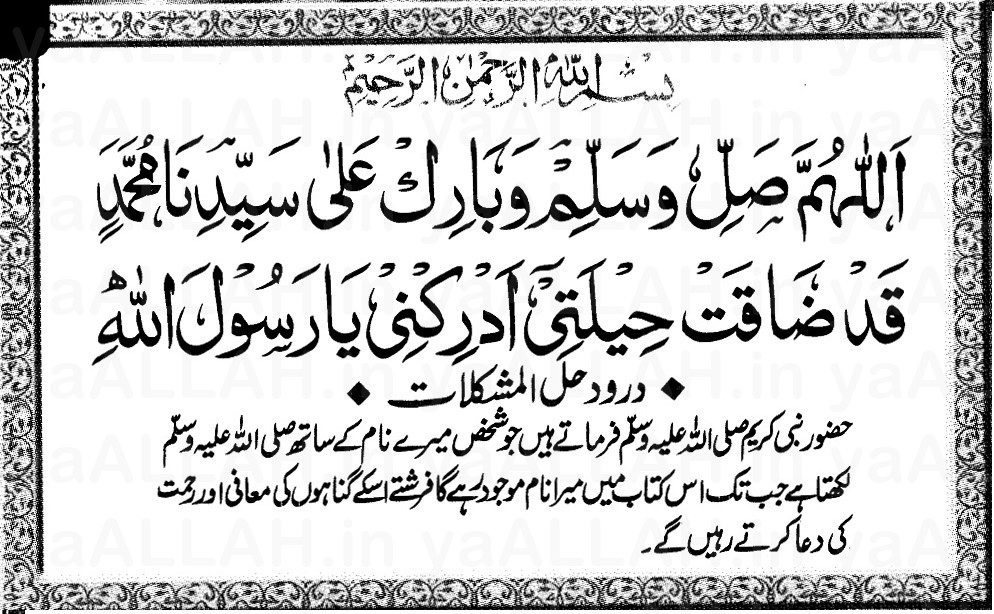 بِسْمِ اللهِ الرَّحْمٰنِ الرَّحِيْمِ
اَللّٰهُمَّ صَلِّ وَسَلِّمْ وَبَارِكْ عَلٰى سَيِّدِنَا مُحَمَّدٍ
قَدْ ضَاقَتْ حِيْلَتِىْ اَدْرِكْنِىْ يَا رَسُوْلَ اللهِ
◆ درود حل المشکلات ◆
حضور نبی کریم صلی اللہ علیہ وسلم فرماتے ہیں جو شخص میرے نام کے ساتھ صلی اللہ علیہ وسلم
لکھتا ہے جب تک اس کتاب میں میرا نام موجود رہے گا فرشتے اسکے گناہوں کی معافی اور رحمت
کی دعا کرتے رہیں گے۔
yaALLAH.in